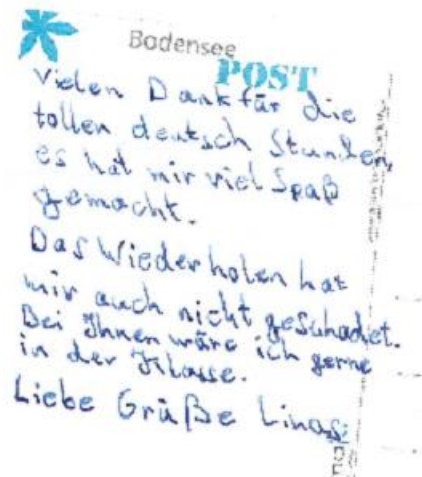 Bodensee
POST
Vielen Dank für die
tollen deutsch Stunden,
es hat mir viel Spaß
gemacht.
Das Wiederholen hat
mir auch nicht geschadet.
Bei Ihnen wäre ich gerne
in der Klasse.
Liebe Grüße Linas